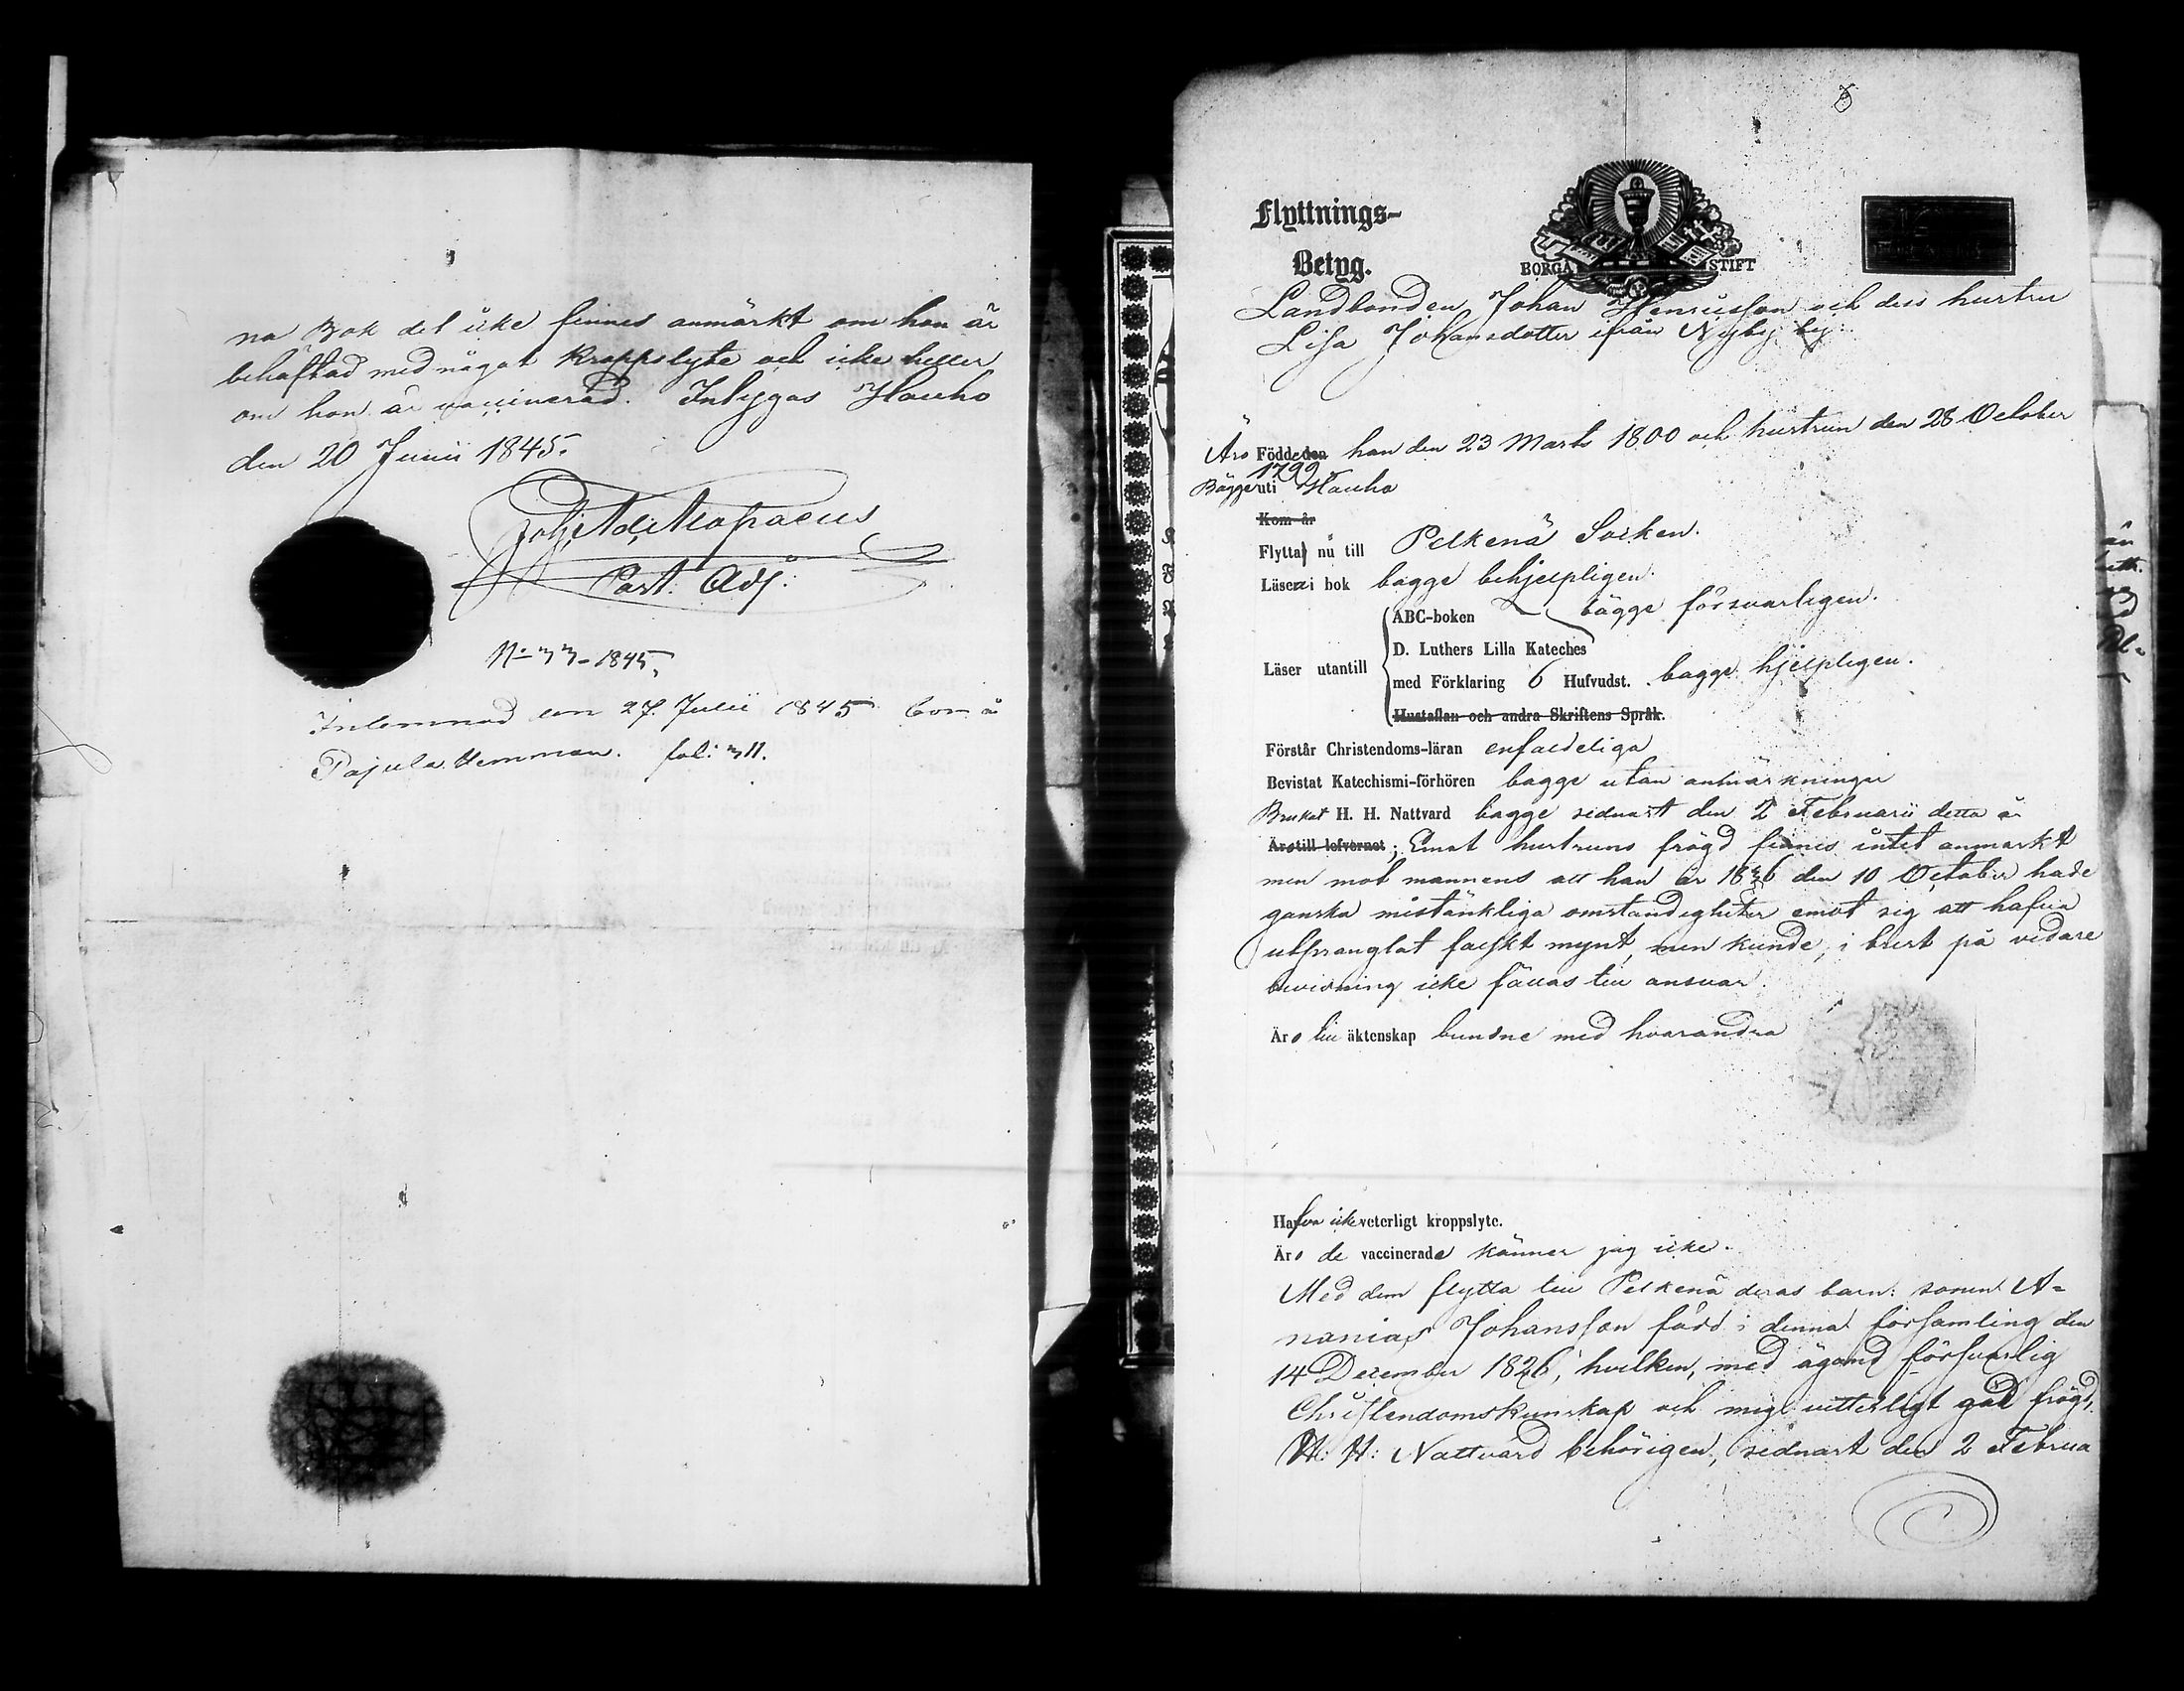 na Bok det icke finnes anmärkt om han är
behäftad med något kroppslyte och icke heller
om han är vaccinerad. Intygas Hauho
den 20 Junii 1845.
Joh: Ad:
Past. Adj:
N: 33-1845,
Inlemnad den 27 Julii 1845 Bor å
Pajula Hemman. fol: 311.
Flyttnings-
Betyg.
BORGÅ STIFT
Landbonden Johan Henricsson och dess hustru
Lisa Johansdotter ifrån Nyby by
Äro Födde den han den 23 Marts 1800 och hustrun den 28 October
1799
Bägge uti Hauho
Kom år
Flytta nu till Pelkenä Socken.
Läsa i bok bägge behjelpligen.
ABC-boken bägge försvarligen.
D. Luthers Lilla Kateches
Läser utantill
med Förklaring 6 Hufvudst. bägge hjelpligen.
Hustaflan och andra Skriftens Språk.
Förstår Christendoms-läran enfaldeliga
Bevistat Katechismi-förhören bägge utan anmärkningar
Brukat H. H. Nattvard bägge sednast den 2 Februarii detta år
Äro till lefvernet; Emot hustruns frägd finnes intet anmärkt
men mot mannens att han år 1836 den 10 October hade
ganska misstänkliga omständigheter emot sig att hafva
utpranglat falskt mynt, men kunde, i brist på vidare
bevisning icke fällas till ansvar.
Äro till äktenskap bundne med hvarandra
Hafva icke veterligt kroppslyte.
Äro de vaccinerade känner jag icke.
Med dem flytta till Pelkenä deras barn: sonen A-
nanias Johansson född i denna församling den
14 December 1826, hvilken, med ägand försvarlig
Christendomskunskap och mig vitterligt god frägd,
H: H: Nattvard behörigen, sednast den 2 Februa